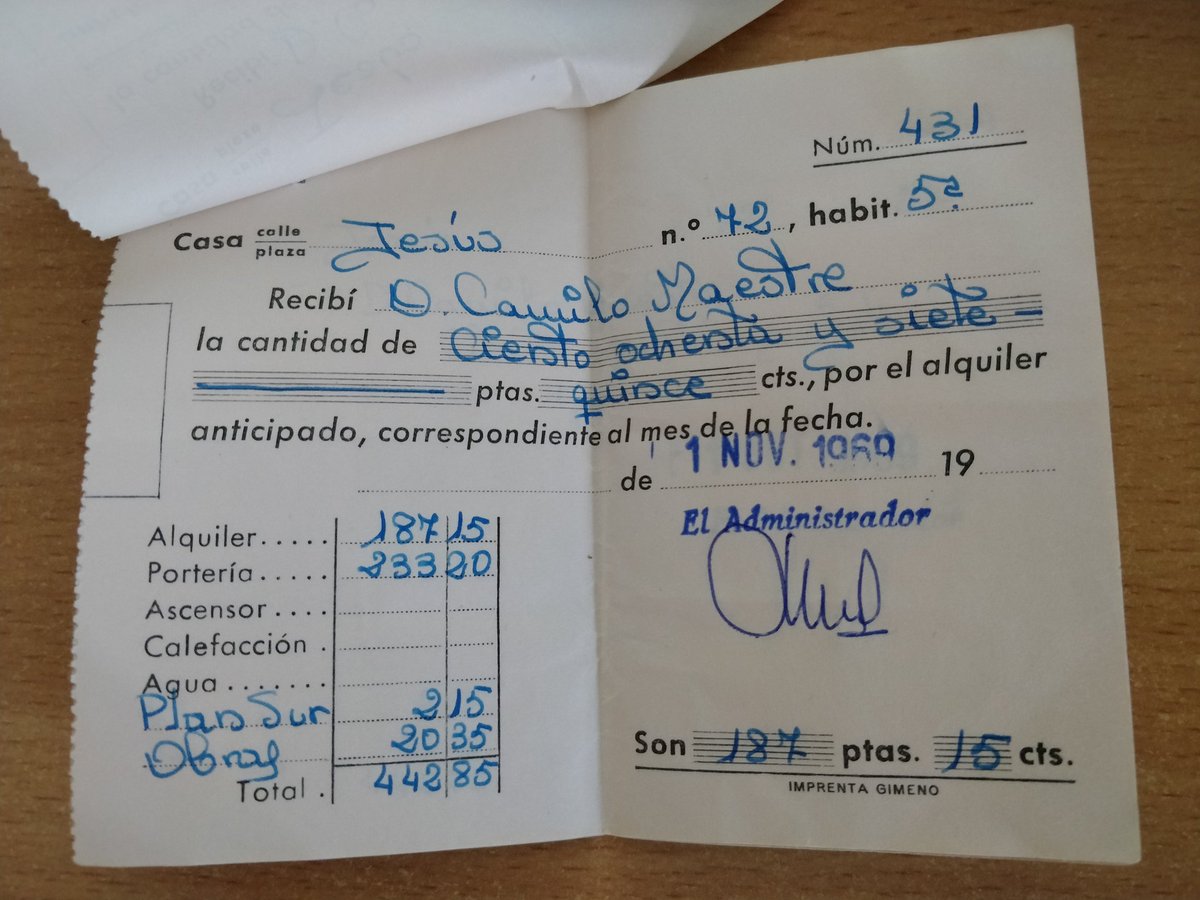 Núm. 431
Casa calle plaza Jesús n.º 72, habit. 5ª
Recibí D. Camilo Maestre
la cantidad de Ciento ochenta y siete —
ptas. quince cts., por el alquiler
anticipado, correspondiente al mes de la fecha.
de 1 NOV. 1969 19
El Administrador
Alquiler..... 187 15
Portería..... 233 20
Ascensor....
Calefacción .
Agua.......
Plan Sur 2 15
Obras 20 35
Total . 442 85
Son 187 ptas. 15 cts.
IMPRENTA GIMENO